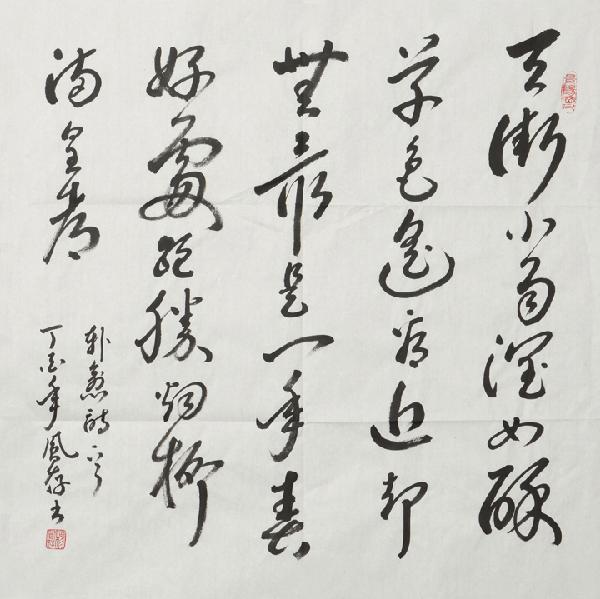 天街小雨潤如酥
草色遙看近却
無最是一年春
好處絕勝烟柳
滿皇都
韩愈詩一首
丁酉年風存书